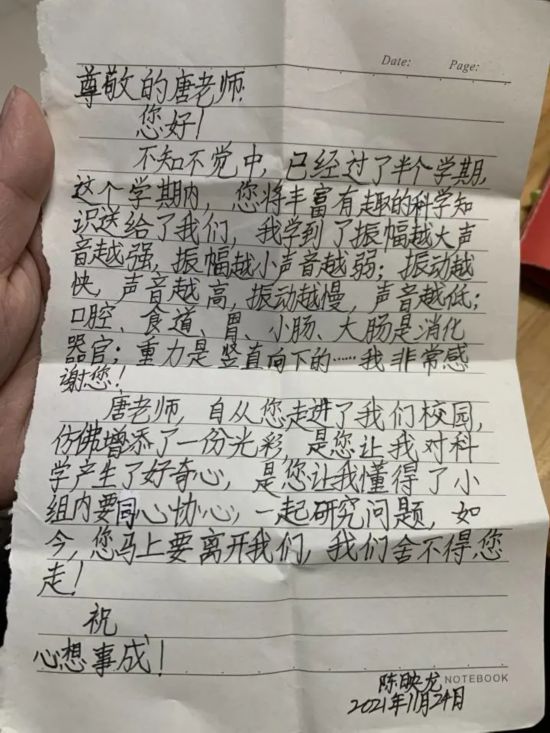 Date: Page:
尊敬的唐老师:
您好!
不知不觉中,已经过了半个学期,
这个学期内,您将丰富有趣的科学知
识送给了我们,我学到了振幅越大声
音越强,振幅越小声音越弱;振动越
快,声音越高,振动越慢,声音越低;
口腔、食道、胃、小肠、大肠是消化
器官;重力是竖直向下的……我非常感
谢您!
唐老师,自从您走进了我们校园,
仿佛增添了一份光彩,是您让我对科
学产生了好奇心,是您让我懂得了小
组内要同心协心,一起研究问题,如
今,您马上要离开我们,我们舍不得您
走!
祝
心想事成!
陈映龙
NOTEBOOK
2021年11月24日